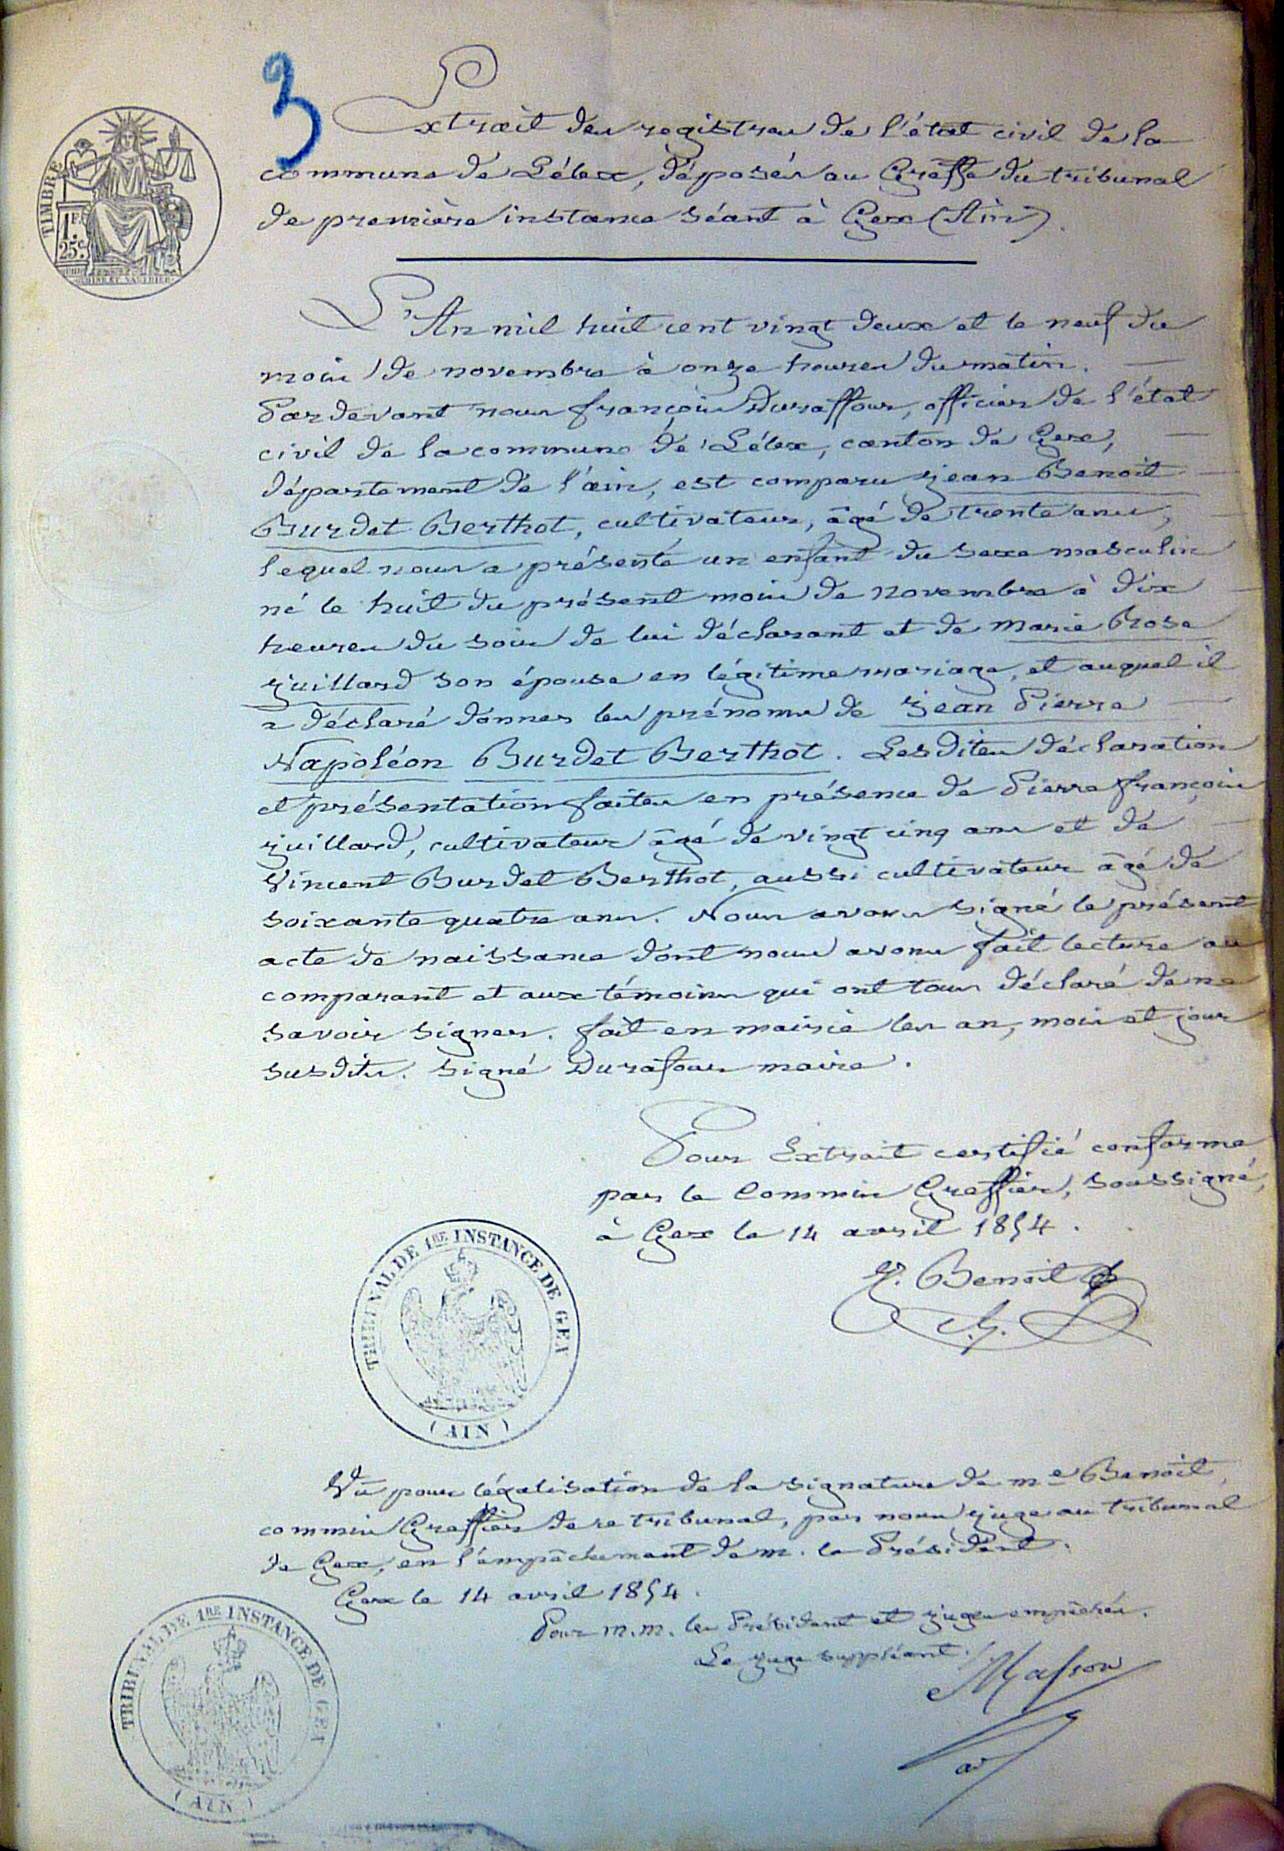 3
TIMBRE
1 F.
25 c.
Extrait des registres de l'état civil de la
commune de Lélex, déposés au Greffe du tribunal
de première instance séant à Gex (Ain).
L'An mil huit cent vingt deux et le neuf du
mois de novembre à onze heures du matin.
Pardevant nous françois Duraffour, officier de l'état
civil de la commune de Lélex, canton de Gex,
département de l'ain, est comparu jean Benoit
Burdet Berthot, cultivateur, âgé de trente ans,
lequel nous a présenté un enfant du sexe masculin
né le huit du présent mois de novembre à dix
heures du soir de lui déclarant et de Marie Rose
juillard son épouse en légitime mariage, et auquel il
a déclaré donner les prénoms de jean Pierre
Napoléon Burdet Berthot. Lesdites déclaration
et présentation faites en présence de Pierre françois
juillard, cultivateur âgé de vingt cinq ans et de
Vincent Burdet Berthot, aussi cultivateur âgé de
soixante quatre ans. Nous avons signé le présent
acte de naissance dont nous avons fait lecture au
comparant et aux témoins qui ont tous déclaré de ne
savoir signer. fait en mairie les an, mois et jour
susdits. signé Durafour maire.
Pour Extrait certifié conforme
par le Commis Greffier, soussigné,
à Gex le 14 avril 1854.
Benoit
TRIBUNAL DE 1RE INSTANCE DE GEX
(AIN)
Vu pour légalisation de la signature de Me Benoit,
commis Greffier de ce tribunal, par nous juge au tribunal
de Gex, en l'empêchement de M. le Président.
Gex le 14 avril 1854.
Pour M.M. les Président et juges empêchés.
Le juge suppléant.
Masson
TRIBUNAL DE 1RE INSTANCE DE GEX
(AIN)